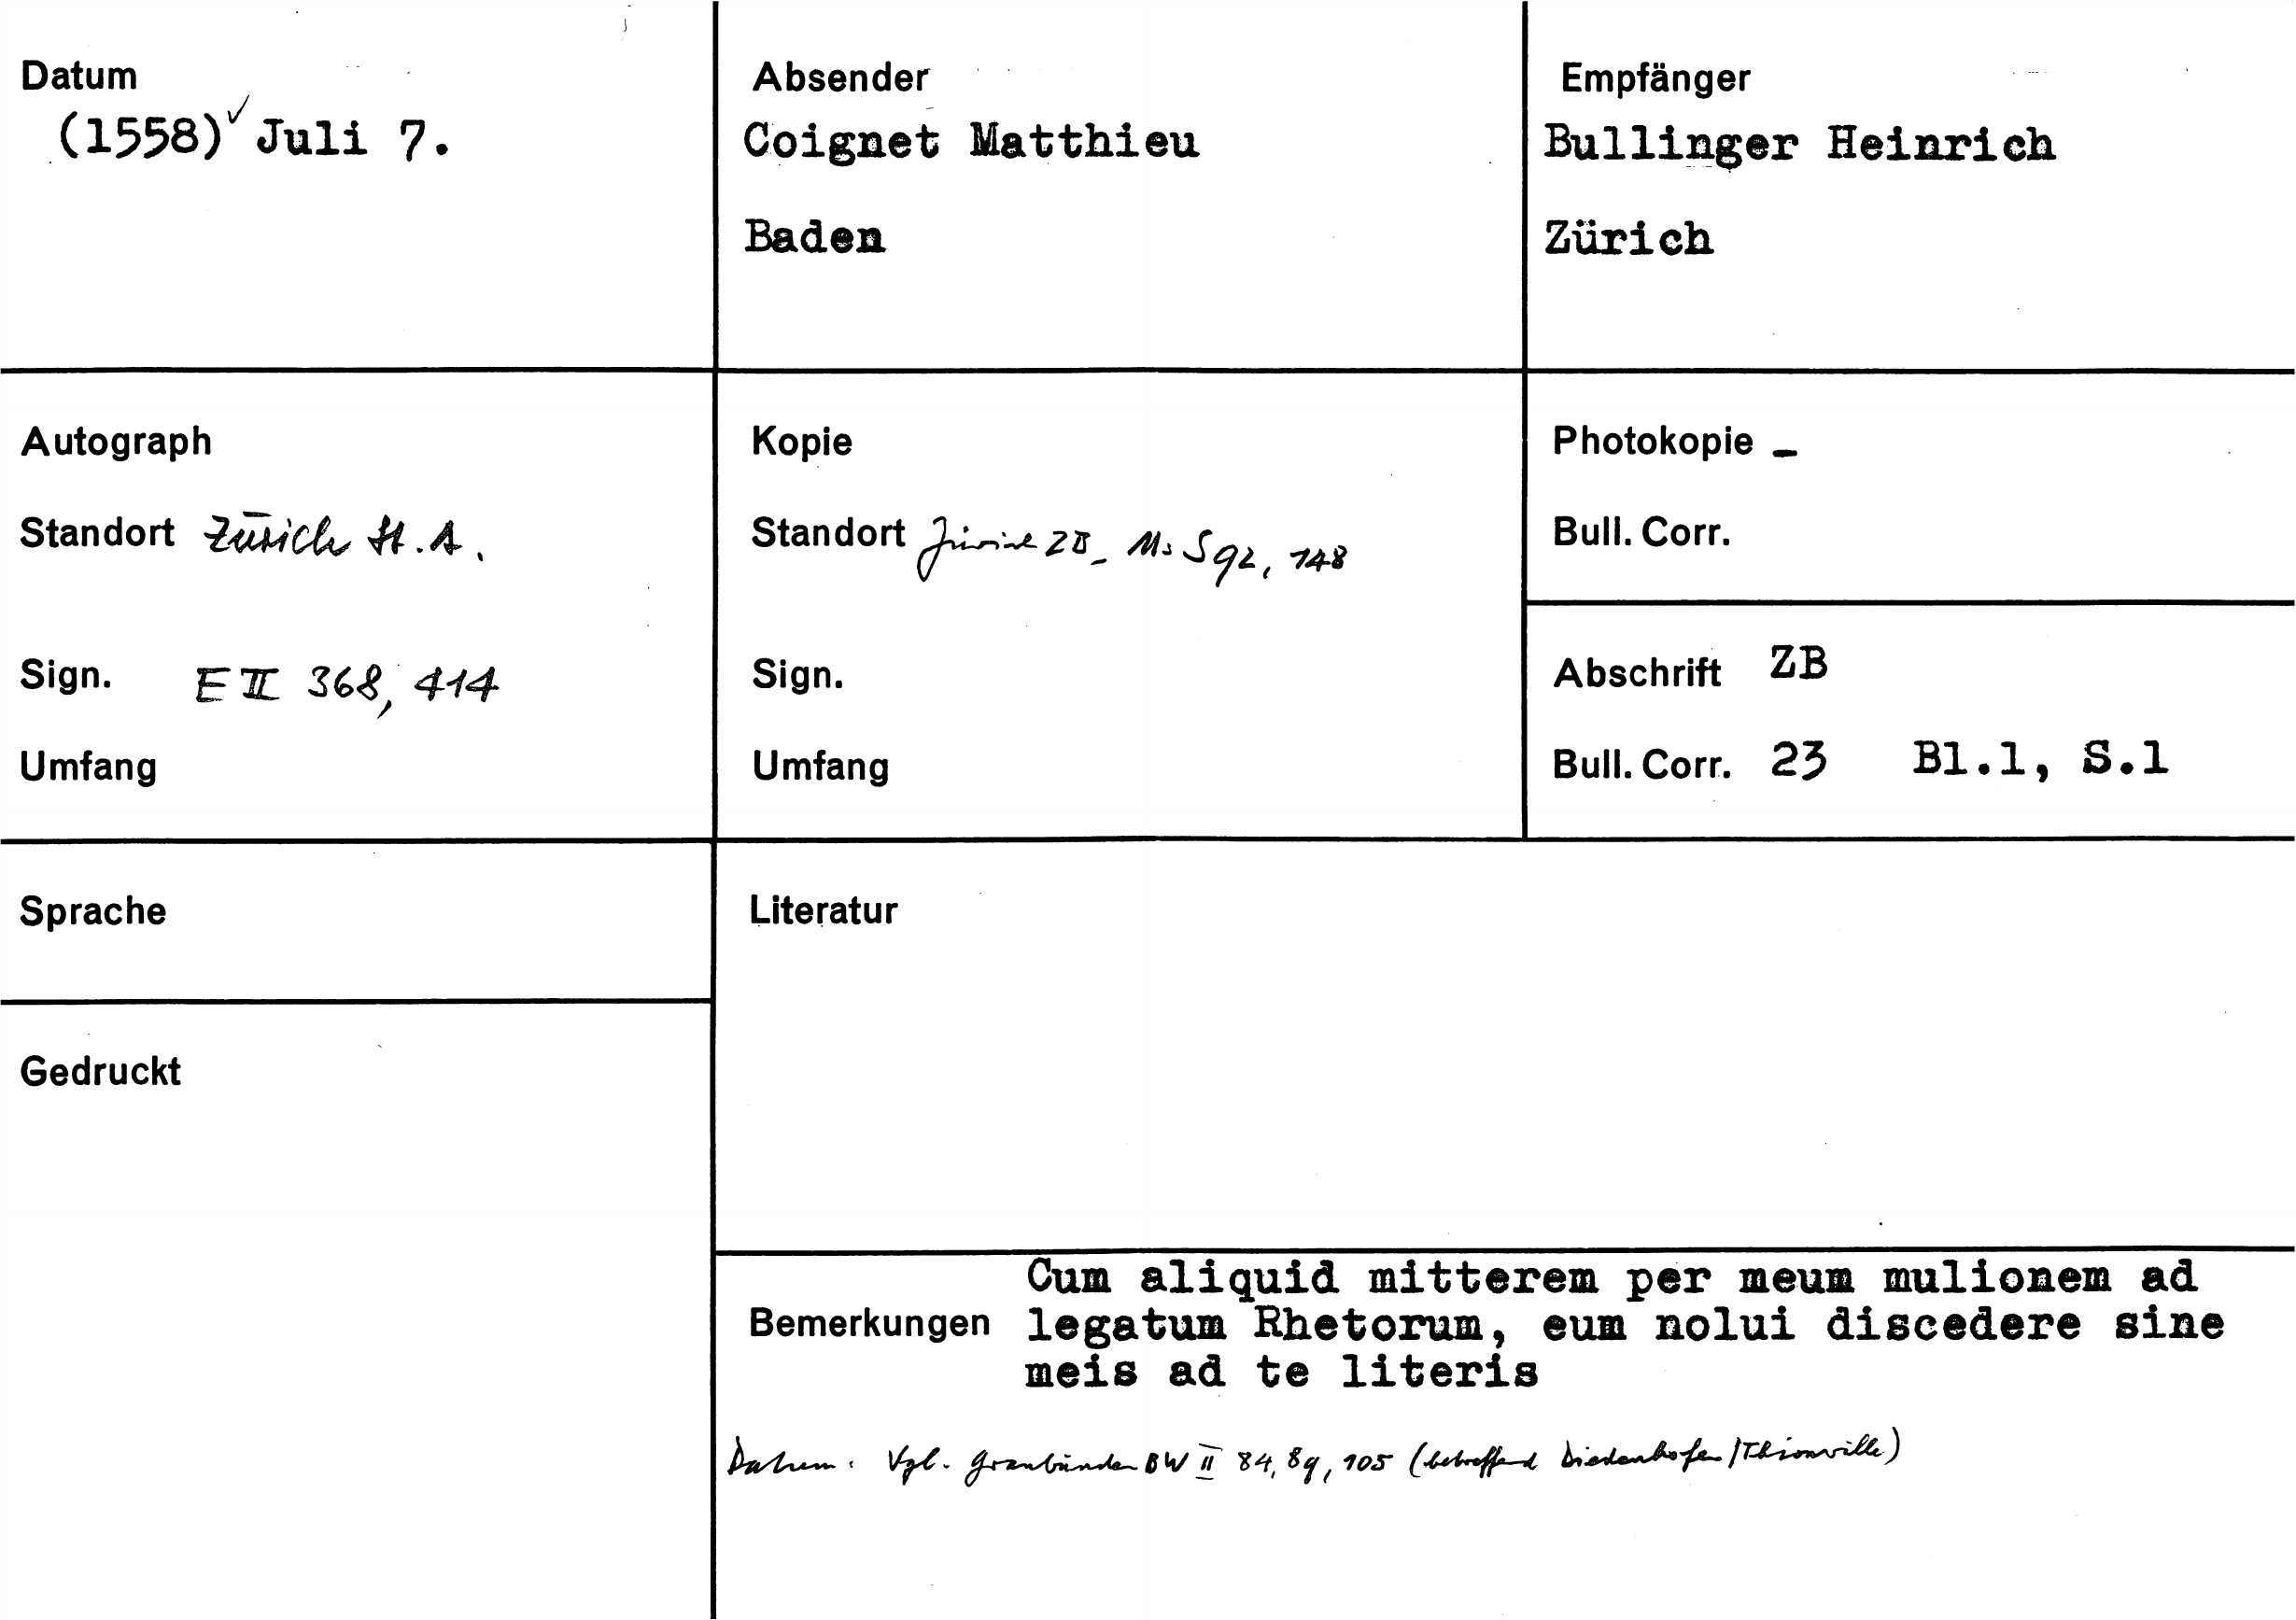 Datum
(1558)✓ Juli 7.
Absender
Coignet Matthieu
Baden
Empfänger
Bullinger Heinrich
Zürich
Autograph
Standort Zürich St.A.
Sign. E II 368, 414
Umfang
Kopie
Standort Zürich ZB_ Ms S 92, 148
Sign.
Umfang
Photokopie –
Bull. Corr.
Abschrift ZB
Bull. Corr. 23 Bl.1, S.1
Sprache
Literatur
Gedruckt
Bemerkungen
Cum aliquid mitterem per meum mulionem ad
legatum Rhetorum, eum nolui discedere sine
meis ad te literis
Datum: Vgl. Graubünden BW II 84, 89, 105 (betreffend Diedenhofen/Thionville)